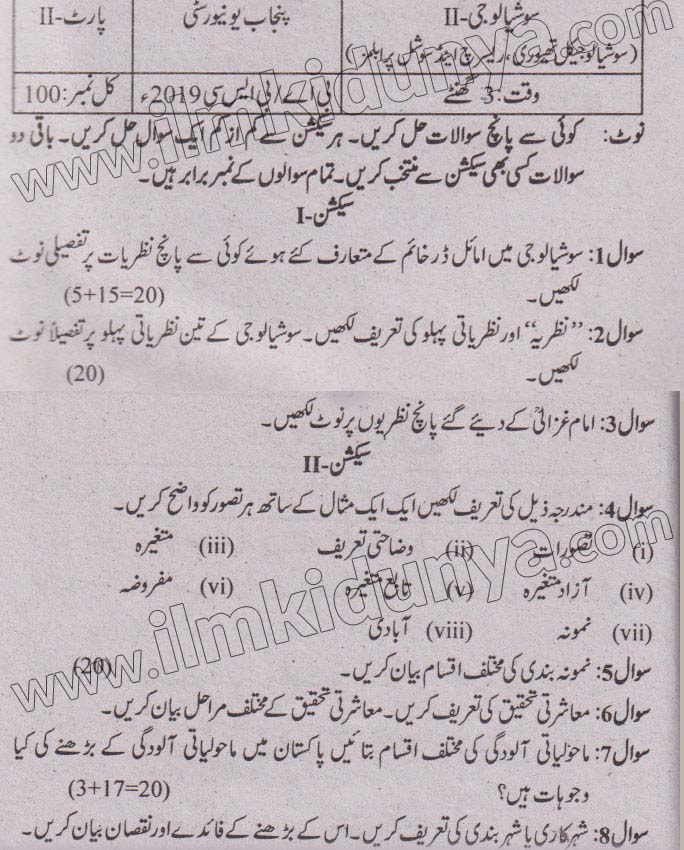 سوشیالوجی-II پنجاب یونیورسٹی پارٹ-II
(سوشیالوجیکل تھیوری، ریسرچ اینڈ سوشل پرابلمز)
وقت: 3 گھنٹے بی اے/بی ایس سی 2019ء کل نمبر: 100
نوٹ: کوئی سے پانچ سوالات حل کریں۔ ہر سیکشن سے کم از کم ایک سوال حل کریں۔ باقی دو
سوالات کسی بھی سیکشن سے منتخب کریں۔ تمام سوالوں کے نمبر برابر ہیں۔
سیکشن-I
سوال1: سوشیالوجی میں امائل ڈرخائم کے متعارف کئے ہوئے کوئی سے پانچ نظریات پر تفصیلی نوٹ
لکھیں۔ (5+15=20)
سوال2: ”نظریہ“ اور نظریاتی پہلو کی تعریف لکھیں۔ سوشیالوجی کے تین نظریاتی پہلو پر تفصیلاً نوٹ
لکھیں۔ (20)
سوال3: امام غزالیؒ کے دیئے گئے پانچ نظریوں پر نوٹ لکھیں۔
سیکشن-II
سوال4: مندرجہ ذیل کی تعریف لکھیں ایک ایک مثال کے ساتھ ہر تصور کو واضح کریں۔
(i) تصورات (ii) وضاحتی تعریف (iii) متغیرہ
(iv) آزاد متغیرہ (v) تابع متغیرہ (vi) مفروضہ
(vii) نمونہ (viii) آبادی
سوال5: نمونہ بندی کی مختلف اقسام بیان کریں۔ (20)
سوال6: معاشرتی تحقیق کی تعریف کریں۔ معاشرتی تحقیق کے مختلف مراحل بیان کریں۔
سوال7: ماحولیاتی آلودگی کی مختلف اقسام بتائیں پاکستان میں ماحولیاتی آلودگی کے بڑھنے کی کیا
وجوہات ہیں؟ (3+17=20)
سوال8: شہرکاری یا شہر بندی کی تعریف کریں۔ اس کے بڑھنے کے فائدے اور نقصان بیان کریں۔
www.ilmkidunya.com
www.ilmkidunya.com